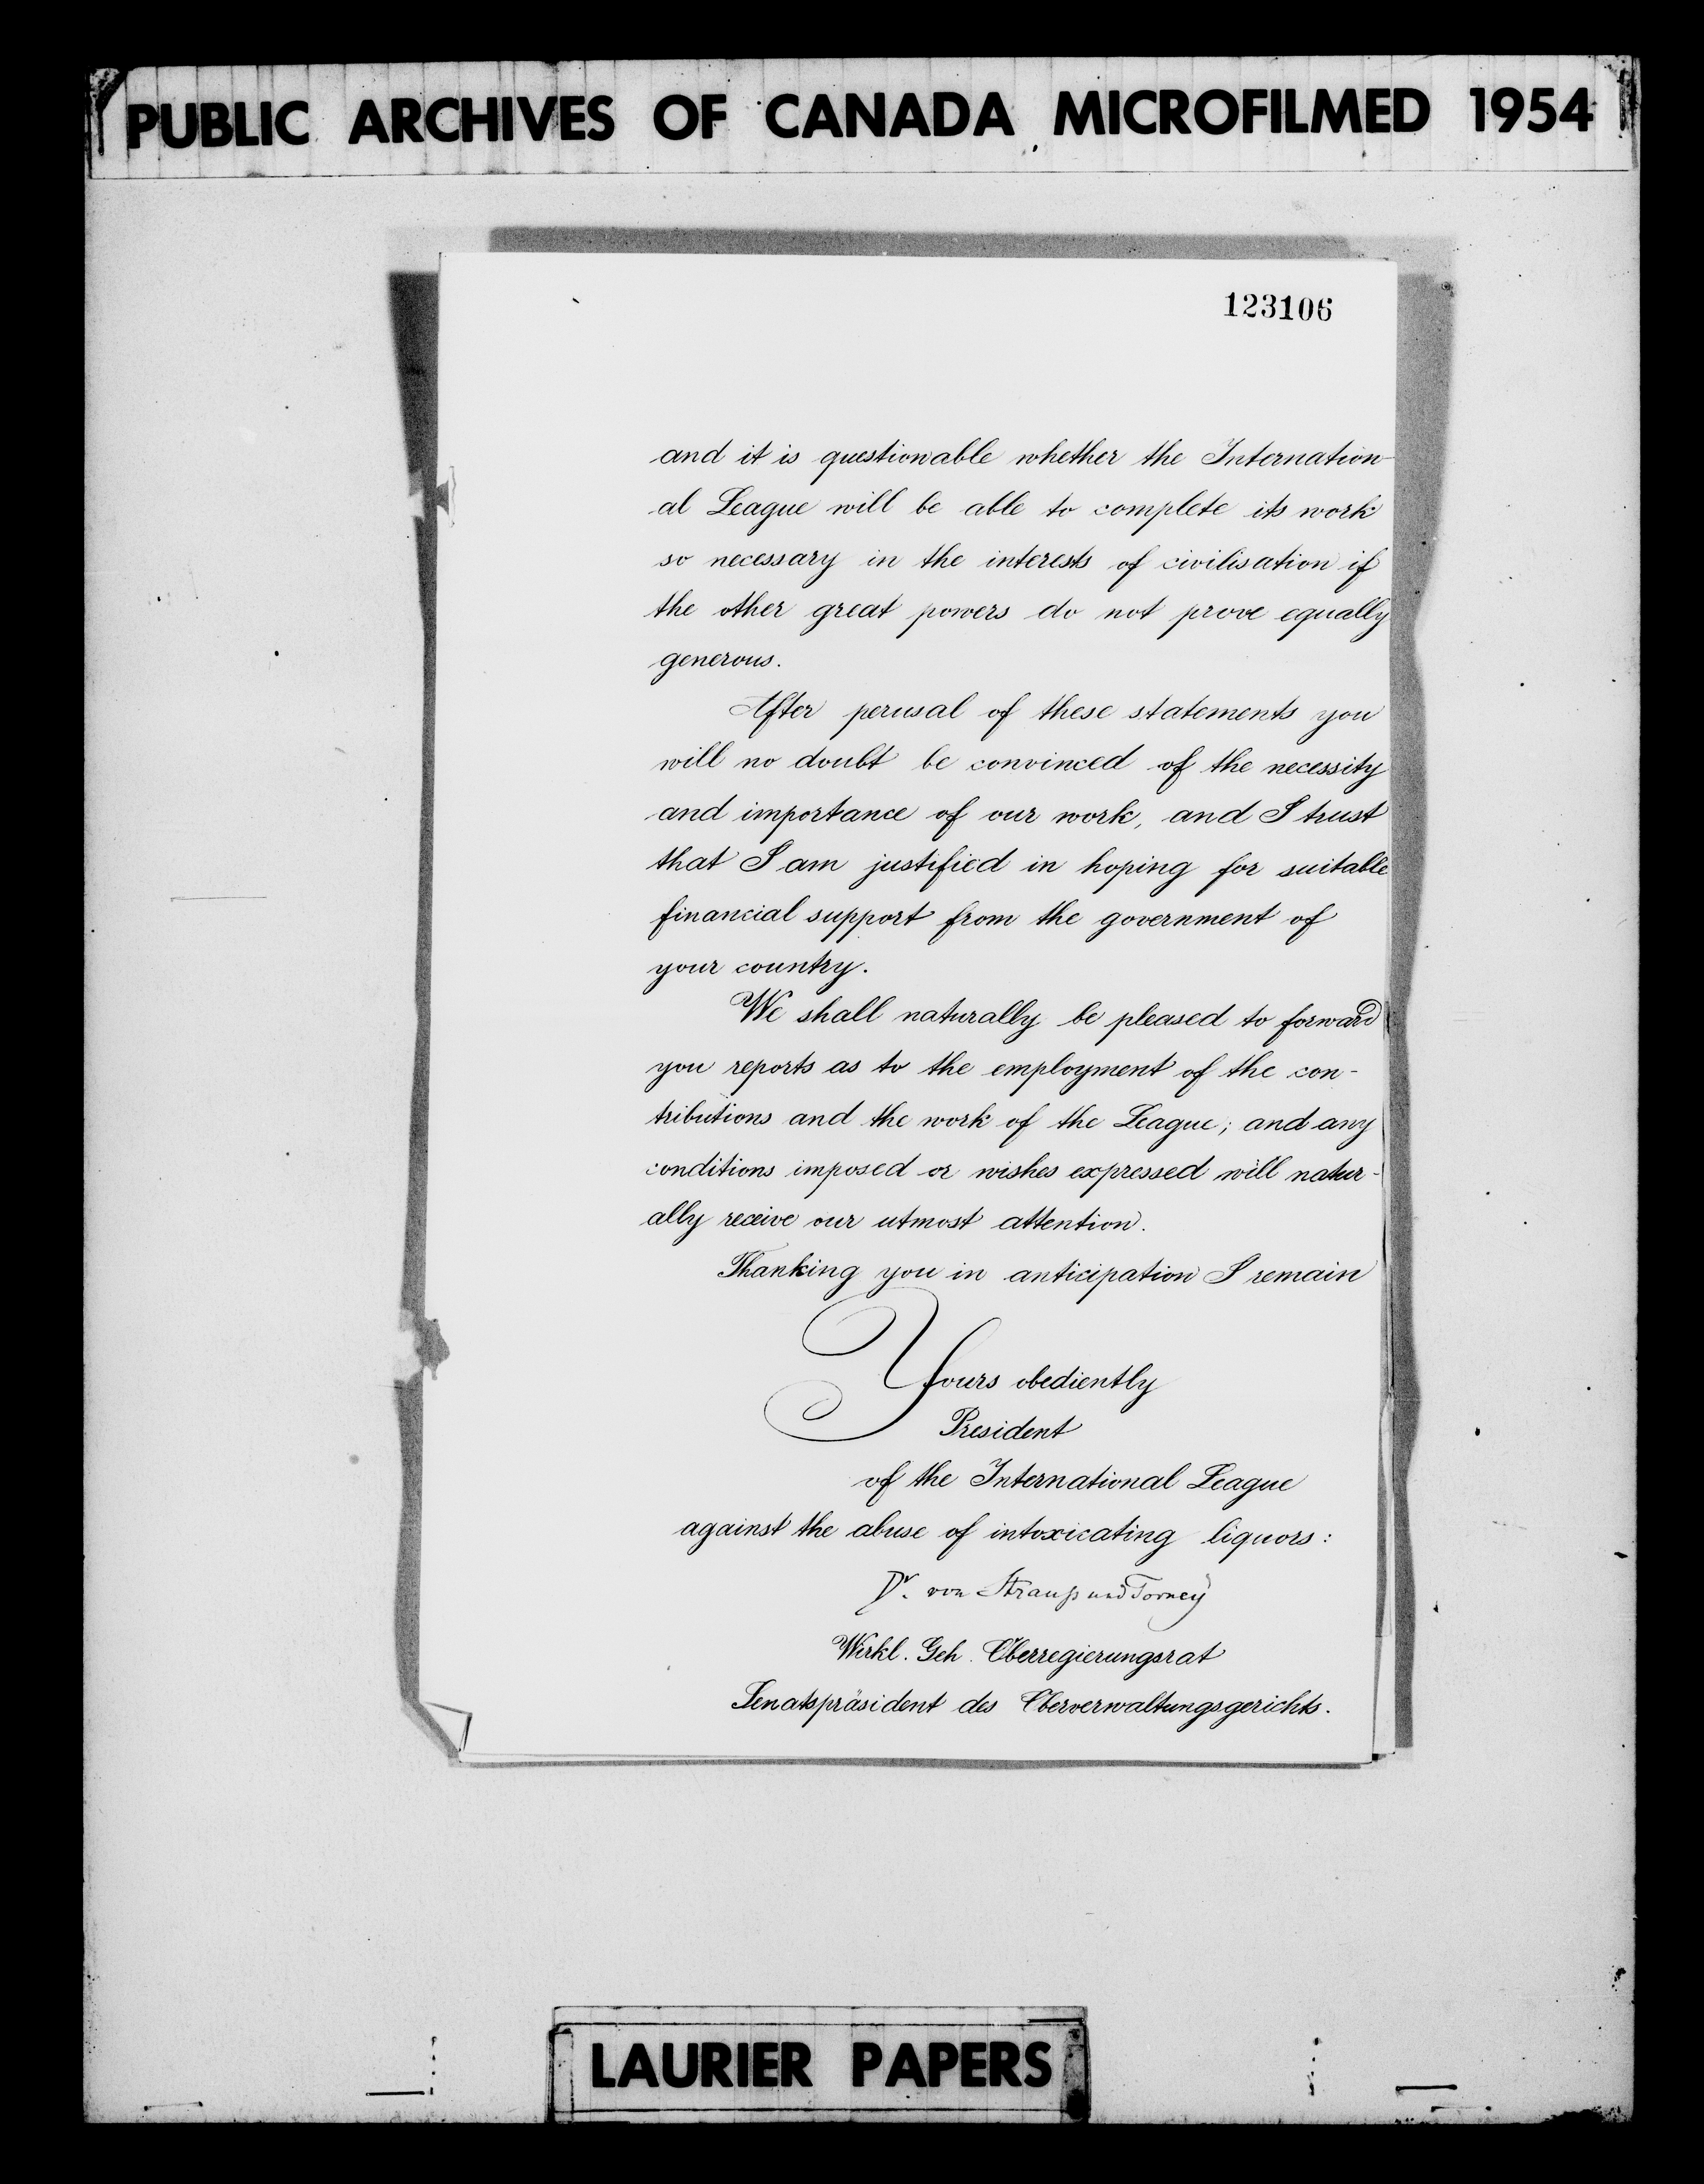 PUBLIC ARCHIVES OF CANADA MICROFILMED 1954
123106
and it is questionable whether the Internation-
al League will be able to complete its work
so necessary in the interests of civilisation if
the other great powers do not prove equally
generous.
After perusal of these statements you
will no doubt be convinced of the necessity
and importance of our work, and I trust
that I am justified in hoping for suitable
financial support from the government of
your country.
We shall naturally be pleased to forward
you reports as to the employment of the con-
tributions and the work of the League; and any
conditions imposed or wishes expressed will natur-
ally receive our utmost attention.
Thanking you in anticipation I remain
Yours obediently
President
of the International League
against the abuse of intoxicating liquors:
Dr. von Strauß und Torney
Wirkl. Geh. Oberregierungsrat
Senatspräsident des Oberverwaltungsgerichts.
LAURIER PAPERS